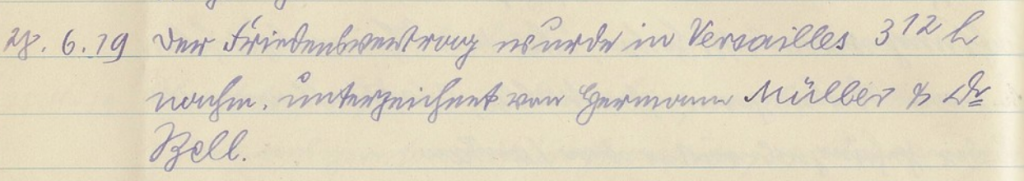 28.6.19 Der Friedensvertrag wurde in Versailles 3 12 h
nachm. unterzeichnet von Hermann Müller & Dr
Bell.